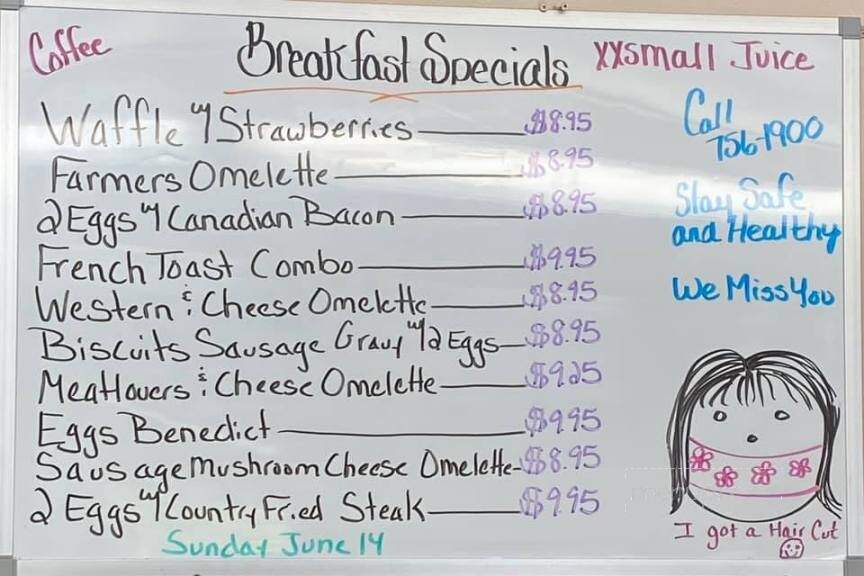 Coffee
Breakfast Specials
XXSmall Juice
Waffle w/ Strawberries $8.95
Farmers Omelette $8.95
2 Eggs w/ Canadian Bacon $8.95
French Toast Combo $9.95
Western & Cheese Omelette $8.95
Biscuits Sausage Gravy w/ 2 Eggs $8.95
Meatlovers & Cheese Omelette $9.25
Eggs Benedict $9.95
Sausage Mushroom Cheese Omelette $8.95
2 Eggs w/ Country Fried Steak $9.95
Sunday June 14
Call
756-1900
Stay Safe
and Healthy
We Miss You
I got a Hair Cut